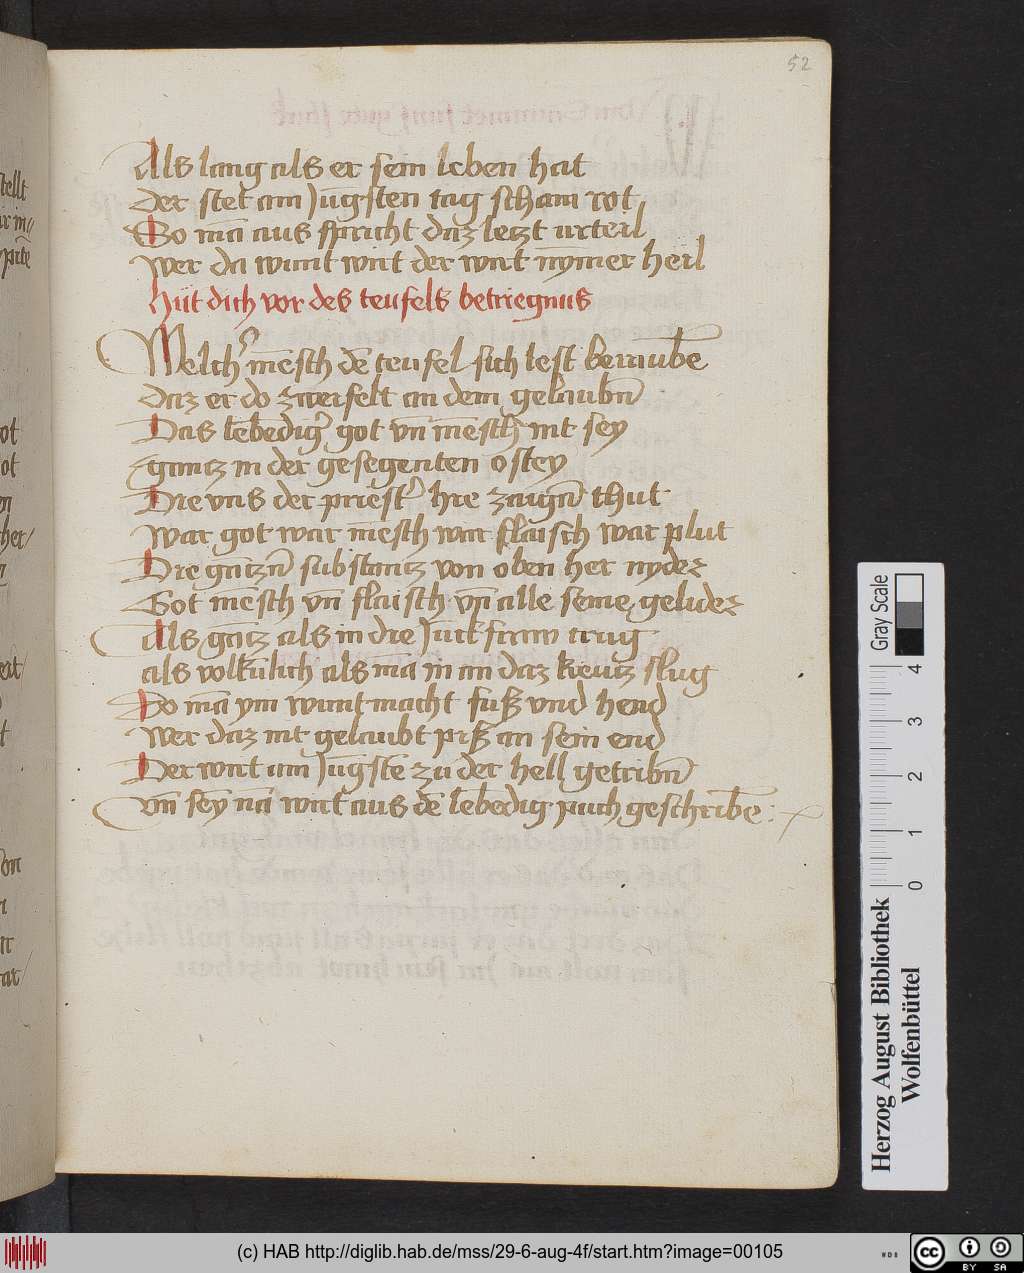 52
Als lang als er sein leben hat
Der stet am Jūgsten tag scham rot
So mā aus spricht daz letzt urteil
Wer da wunt wirt der wirt nȳmer heil
Hüt dich vor des teufels betriegnus
Welch' mēsch dē teufel sich lest beraubē
Daz er do zweifelt an dem gelaubn̄
Das lebēdig' got vn̄ mēsch nit sey
gantz in der gesegenten ostey
Die vns der priest' hie zaign̄ thut
War got war mēsch war flaisch war plut
Die gātzn̄ substantz von oben her nyder
Got mēsch vn̄ flaisch vn̄ alle seine gelider
Als gātz als in die Jūckfraw trug
als volkūlich als mā in an daz kreutz slug
Do mā ym wunt macht fuß vnd hend
Wer daz nit gelaubt piß an sein end
Der wirt am Jūgstē zu der hell getribn̄
vn̄ sey nā wirt aus dē lebēdig puch geschribē
Herzog August Bibliothek
Wolfenbüttel
Gray Scale
0 1 2 3 4
(c) HAB http://diglib.hab.de/mss/29-6-aug-4f/start.htm?image=00105
WDB
cc BY SA